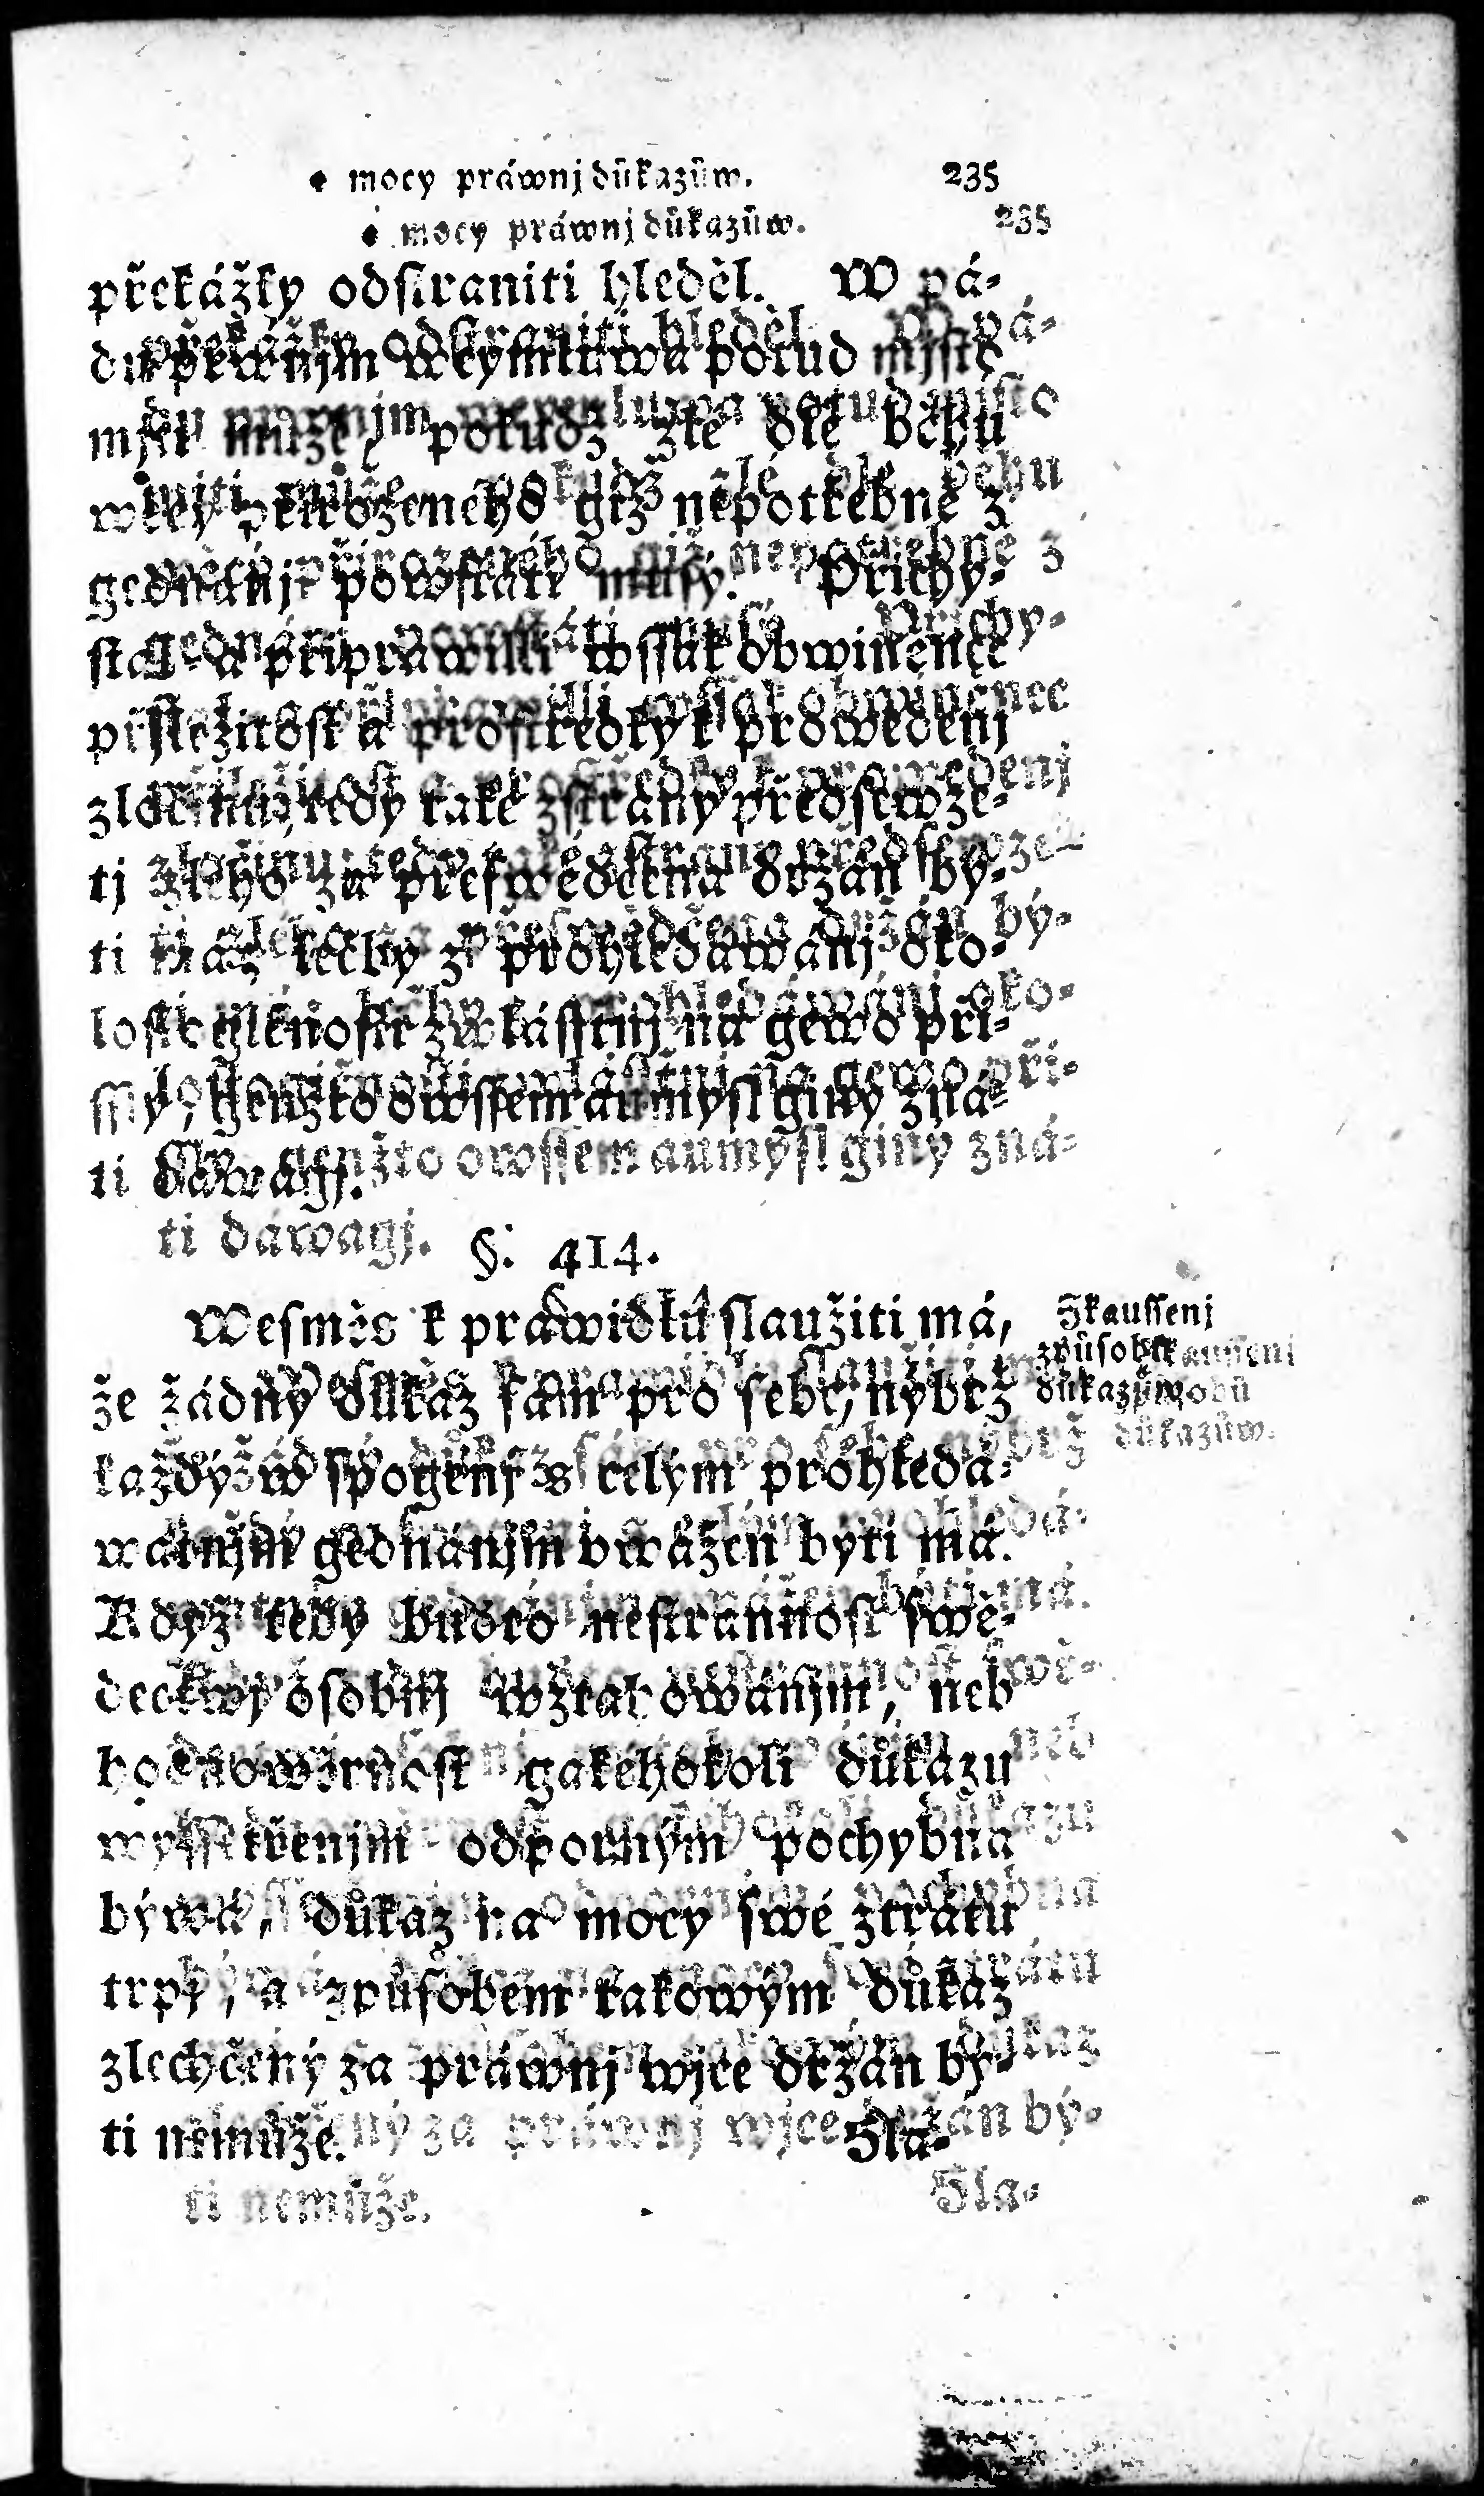 o mocy práwnj důkazůw. 235
překážky odstraniti hleděl. W pá-
du prwnjm wymluwa potud mjsto
mjti může, pokudž zlé dle běhu
wěcý přirozeného giž nepotřebně z
gednánj powstati musý. Přichy-
stal a připrawilli wssak obwiněnec
přjležitost a prostředky k prowedenj
zločinu, tedy také zstrany předsewze-
tj zlého za přeswědčena držán bý-
ti má, lečby z prohledáwánj oko-
ličnosti zwlásstnj na gewo při-
ssly, genžto owssem aumysl giný zná-
ti dáwagj.
§. 414.
Wesměs k prawidlu slaužiti má,
že žádný důkaz sám pro sebe, nýbrž
každý w spogenj s celým prohledá-
watnjm gednánjm vwážen býti má.
Když tedy buďto nestrannost swě-
dectwj osobnj wztahowánjm, neb
hodnowěrnost gakéhokoli důkazu
wyssetřenjm odporným pochybna
býwá, důkaz na mocy swé ztrátu
trpj, a způsobem takowým důkaz
zlechčený za práwnj wjce držán bý-
ti nemůže.
Sla-
Zkaussenj
způsobů
důkazůw.